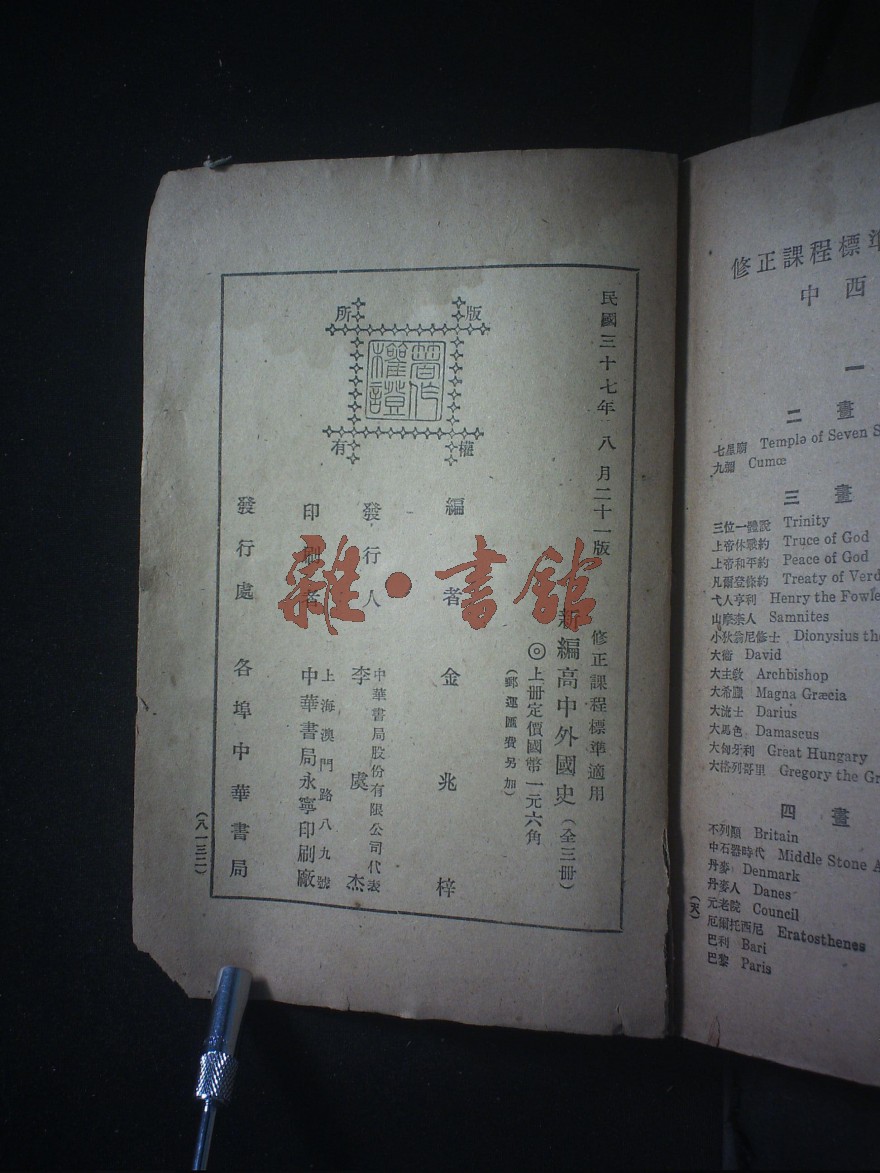 民國三十七年八月二十一版
修正課程標準適用
新編高中外國史(全三冊)
◎上册定價國幣一元六角
(郵運匯費另加)
版權所有
著作權證
編者 金兆梓
發行人 李虞杰
中華書局股份有限公司代表
印刷者
上海澳門路八九號
中華書局永寧印刷廠
發行處 各埠中華書局
(八一三二)
雜·書館
修正課程標準
中西
一
二畫
七星廟 Temple of Seven S
Cumœ
三畫
三位一體說 Trinity
上帝休戰約 Truce of God
上帝和平約 Peace of God
凡爾登條約 Treaty of Verd
弋人亨利 Henry the Fowle
山摩奈人 Samnites
小狄翁尼修士 Dionysius the
大衛 David
大主敎 Archbishop
大希臘 Magna Græcia
大流士 Darius
大馬色 Damascus
大匈牙利 Great Hungary
大格列哥里 Gregory the Gr
四畫
不列顛 Britain
中石器時代 Middle Stone A
丹麥 Denmark
丹麥人 Danes
元老院 Council
厄爾托西尼 Eratosthenes
巴利 Bari
巴黎 Paris
(天)